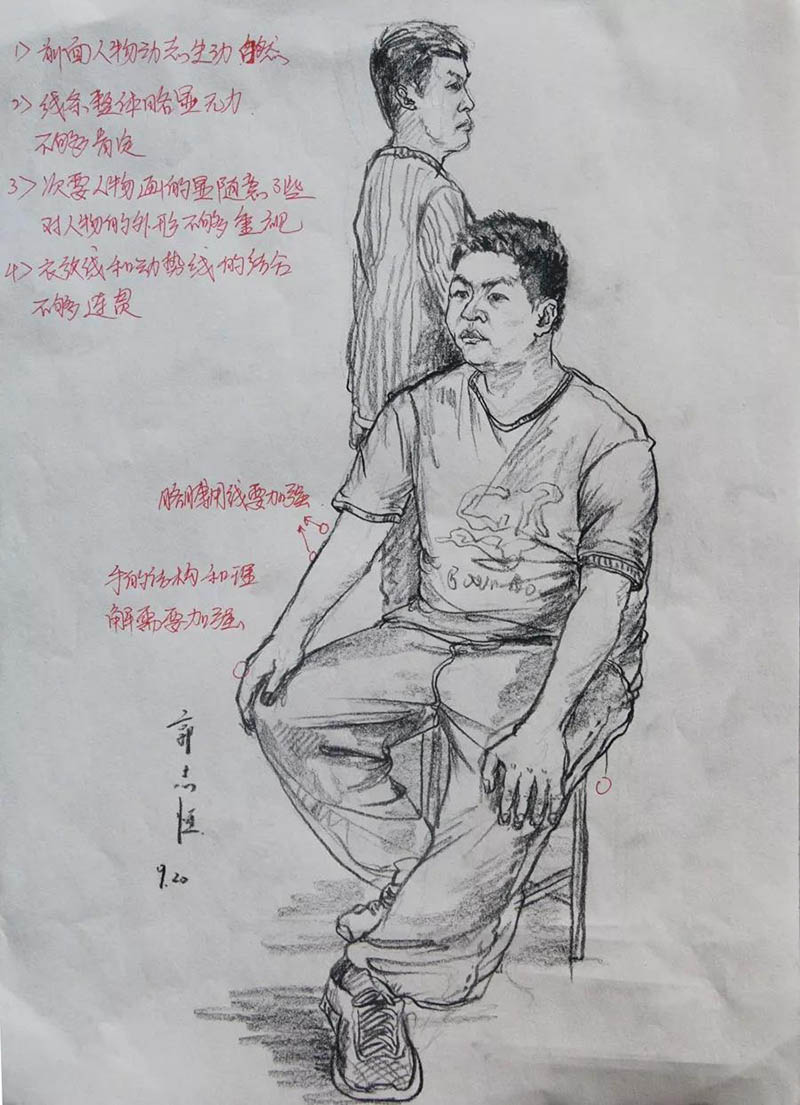 1> 前面人物动态生动自然
2> 线条整体略显无力
不够肯定
3> 次要人物画的显随意了些
对人物的外形不够重视
4> 衣纹线和动势线的结合
不够连贯
胳膊用线要加强
手的结构和理
解需要加强
郭志恒
9.20